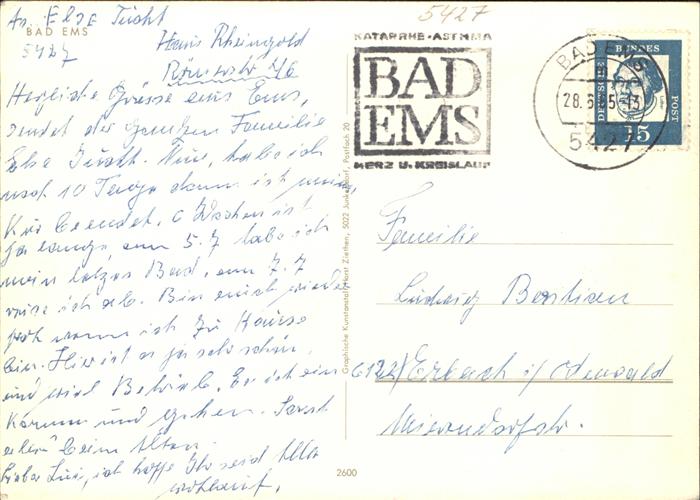 An. Else
BAD EMS
5427
Haus Rheingold
Römerstr. 46
Herzliche Grüsse aus Ems,
sendet der ganzen Familie
Else. Nun, habe ich
noch 10 Tage dann ist meine
Kur beendet. 6 Wochen ist
ja lange am 5.7 habe ich
mein letztes Bad, am 7.7
reise ich ab. Bin auch wieder
froh wenn ich zu Hause
bin. Hier ist es ja sehr schön,
und viel Betrieb. Es ist ein
Kommen und gehen. Sonst
alles beim Alten.
Liebe, ich hoffe Ihr seid Alle
wohlauf.
5427
KATARRHE·ASTHMA
BAD
EMS
HERZ U. KREISLAUF
BAD EMS
28.
5427
DEUTSCHE
BUNDES
POST
15
Graphische Kunstanstalt Horst Ziethen, 5022 Junkersdorf, Postfach 20
Familie
Ludwig
6122 Erbach i/Odenwald
Mierendorfstr.
2600